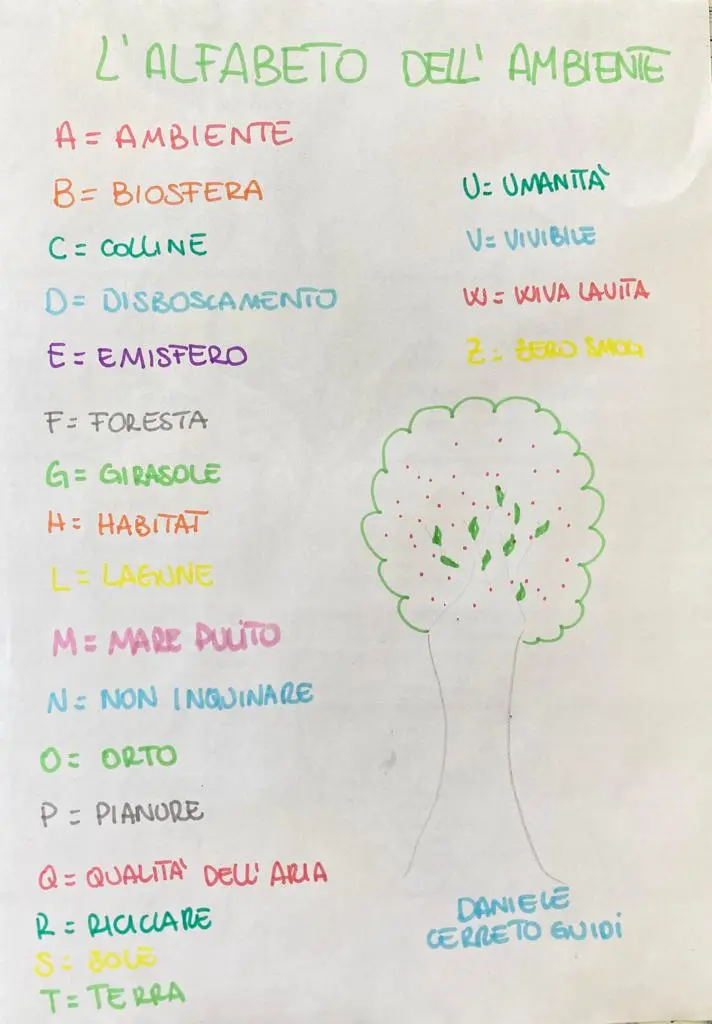 L'ALFABETO DELL'AMBIENTE
A = AMBIENTE
B = BIOSFERA
C = COLLINE
D = DISBOSCAMENTO
E = EMISFERO
F = FORESTA
G = GIRASOLE
H = HABITAT
L = LAGUNE
M = MARE PULITO
N = NON INQUINARE
O = ORTO
P = PIANURE
Q = QUALITÀ DELL'ARIA
R = RICICLARE
S = SOLE
T = TERRA
U = UMANITÀ
V = VIVIBILE
W = WIVA LA VITA
Z = ZERO SMOG
DANIELE
CERRETO GUIDI